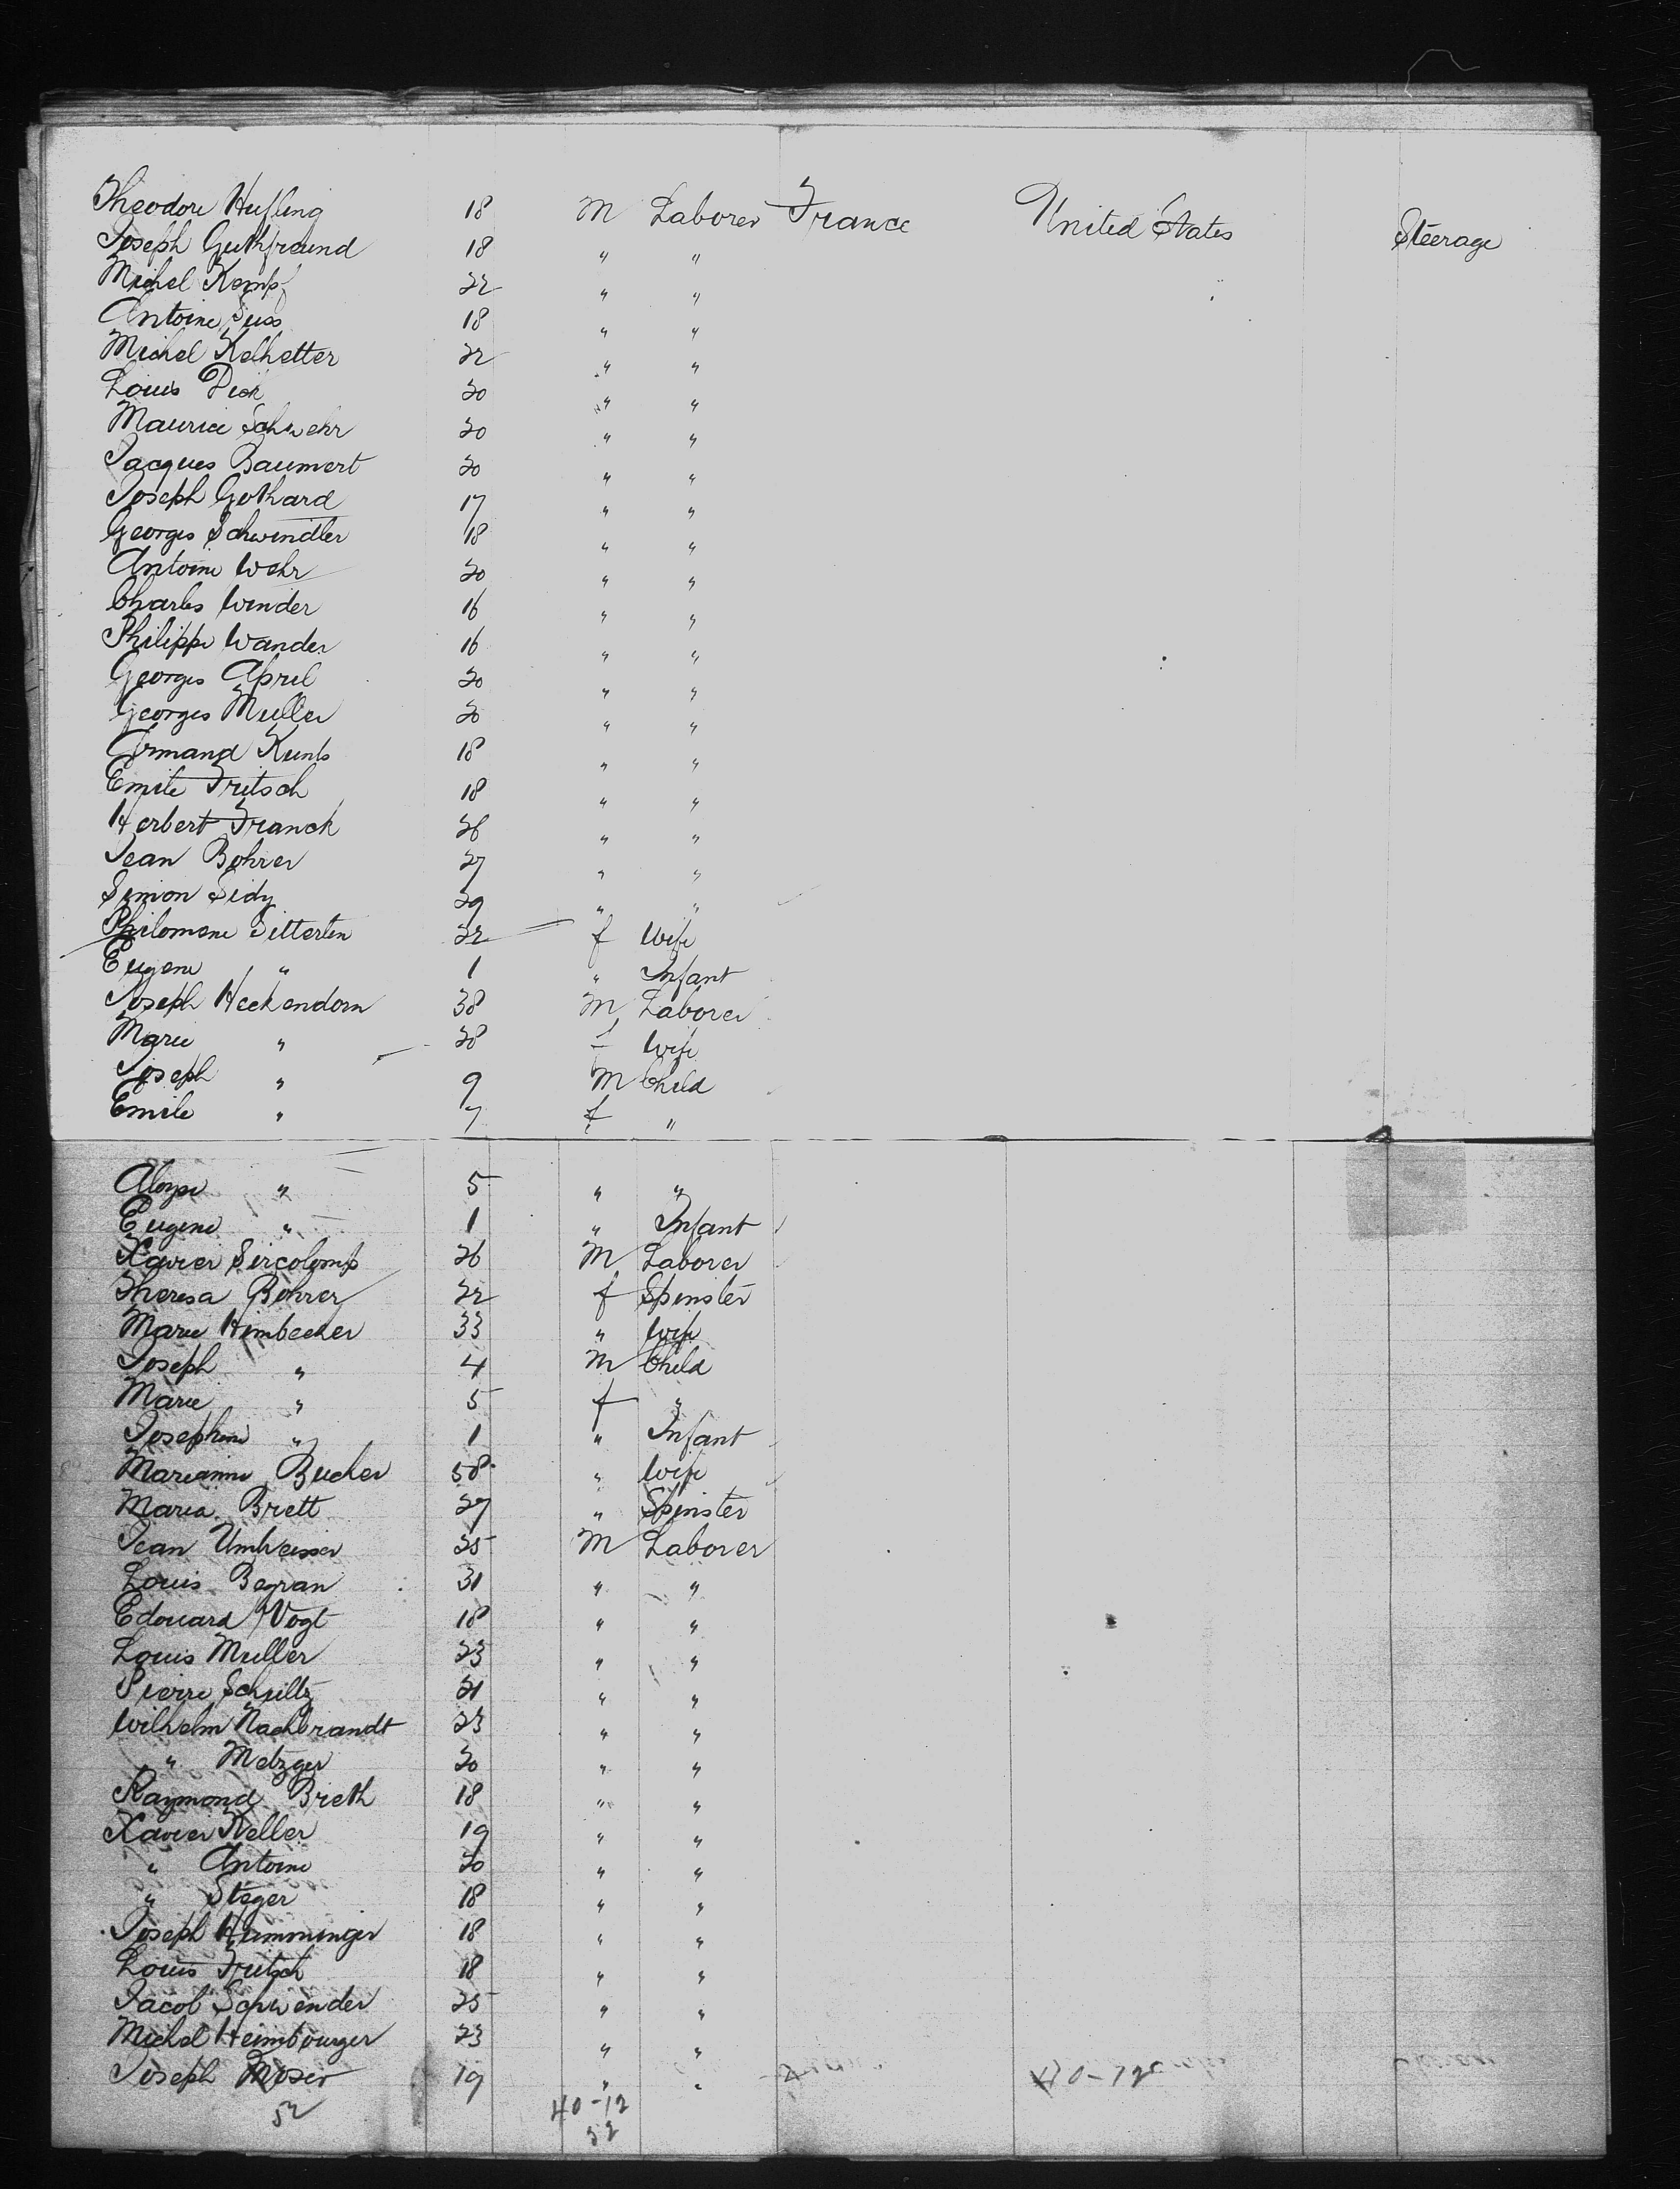 Theodore Hufling 18 M Laborer France United States Steerage
Joseph Guthfreund 18 " "
Michel Kempf 22 " "
Antoine Suss 18 " "
Michel Kelhetter 22 " "
Louis Dick 20 " "
Maurice Schwehr 20 " "
Jacques Baumert 20 " "
Joseph Gothard 17 " "
Georges Schwindler 18 " "
Antoine Wehr 20 " "
Charles Winder 16 " "
Philippe Wander 16 " "
Georges April 20 " "
Georges Muller 20 " "
Armand Kunts 18 " "
Emile Fritsch 18 " "
Herbert Franck 26 " "
Jean Bohrer 27 " "
Simon Sidy 29 " "
Philomene Ditterlin 22 f Wife
Eugene " 1 " Infant
Joseph Heckendorn 38 M Laborer
Marie " 28 f Wife
Joseph " 9 M Child
Emile " 7 f "
Aloyse " 5 " "
Eugene " 1 " Infant
Xavier Sircolomp 26 M Laborer
Theresa Bohrer 22 f Spinster
Marie Himbecher 33 " Wife
Joseph " 4 M Child
Marie " 5 f "
Josephine " 1 " Infant
Marianne Bucher 58 " Wife
Maria Brett 27 " Spinster
Jean 25 M Laborer
Louis Begran 31 " "
Edouard Vogt 18 " "
Louis Muller 23 " "
Pierre Schultz 21 " "
Wilhelm Nachbrandt 23 " "
" Metzger 20 " "
Raymond Breth 18 " "
Xavier Keller 19 " "
" Antoine 20 " "
" Steger 18 " "
Joseph Hamminger 18 " "
Louis Fritsch 18 " "
Jacob Schwender 25 " "
Michel Heimbourger 23 " "
Joseph Moser 19 " "
52 40-12 40-12
52